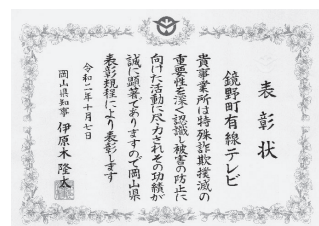 表彰状
鏡野町有線テレビ
貴事業所は特殊詐欺撲滅の
重要性を深く認識し被害の防止に
向けた活動に尽力されその功績が
誠に顕著でありますので岡山県
表彰規程により表彰します
令和二年十月七日
岡山県知事 伊原木隆太